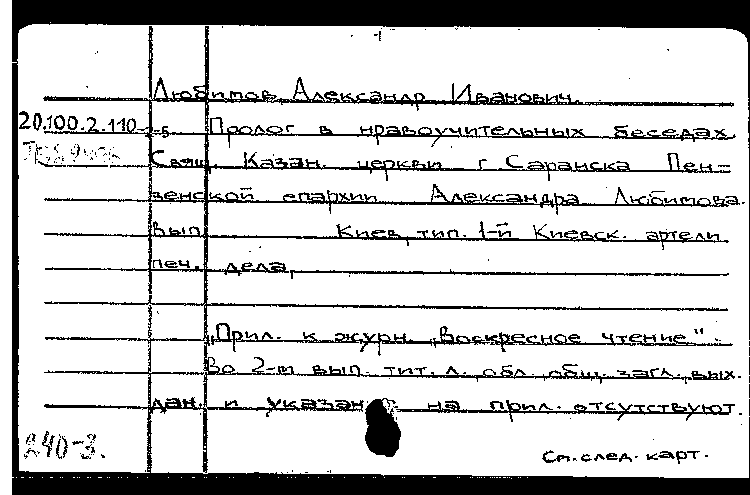 Любимов, Александр Иванович.
20.100.2.110-2-5. Пролог в нравоучительных беседах
Свящ. Казан. церкви г Саранска Пен=
зенской епархии Александра Любимова.
Вып. Киев, тип. 1-й Киевск. артели
печ. дела,
"Прил. к журн. "Воскресное чтение".
Во 2-м вып. тит. л., обл., общ. загл., вых.
дан. и указан на прил. отсутствуют.
240-3.
См. след. карт.